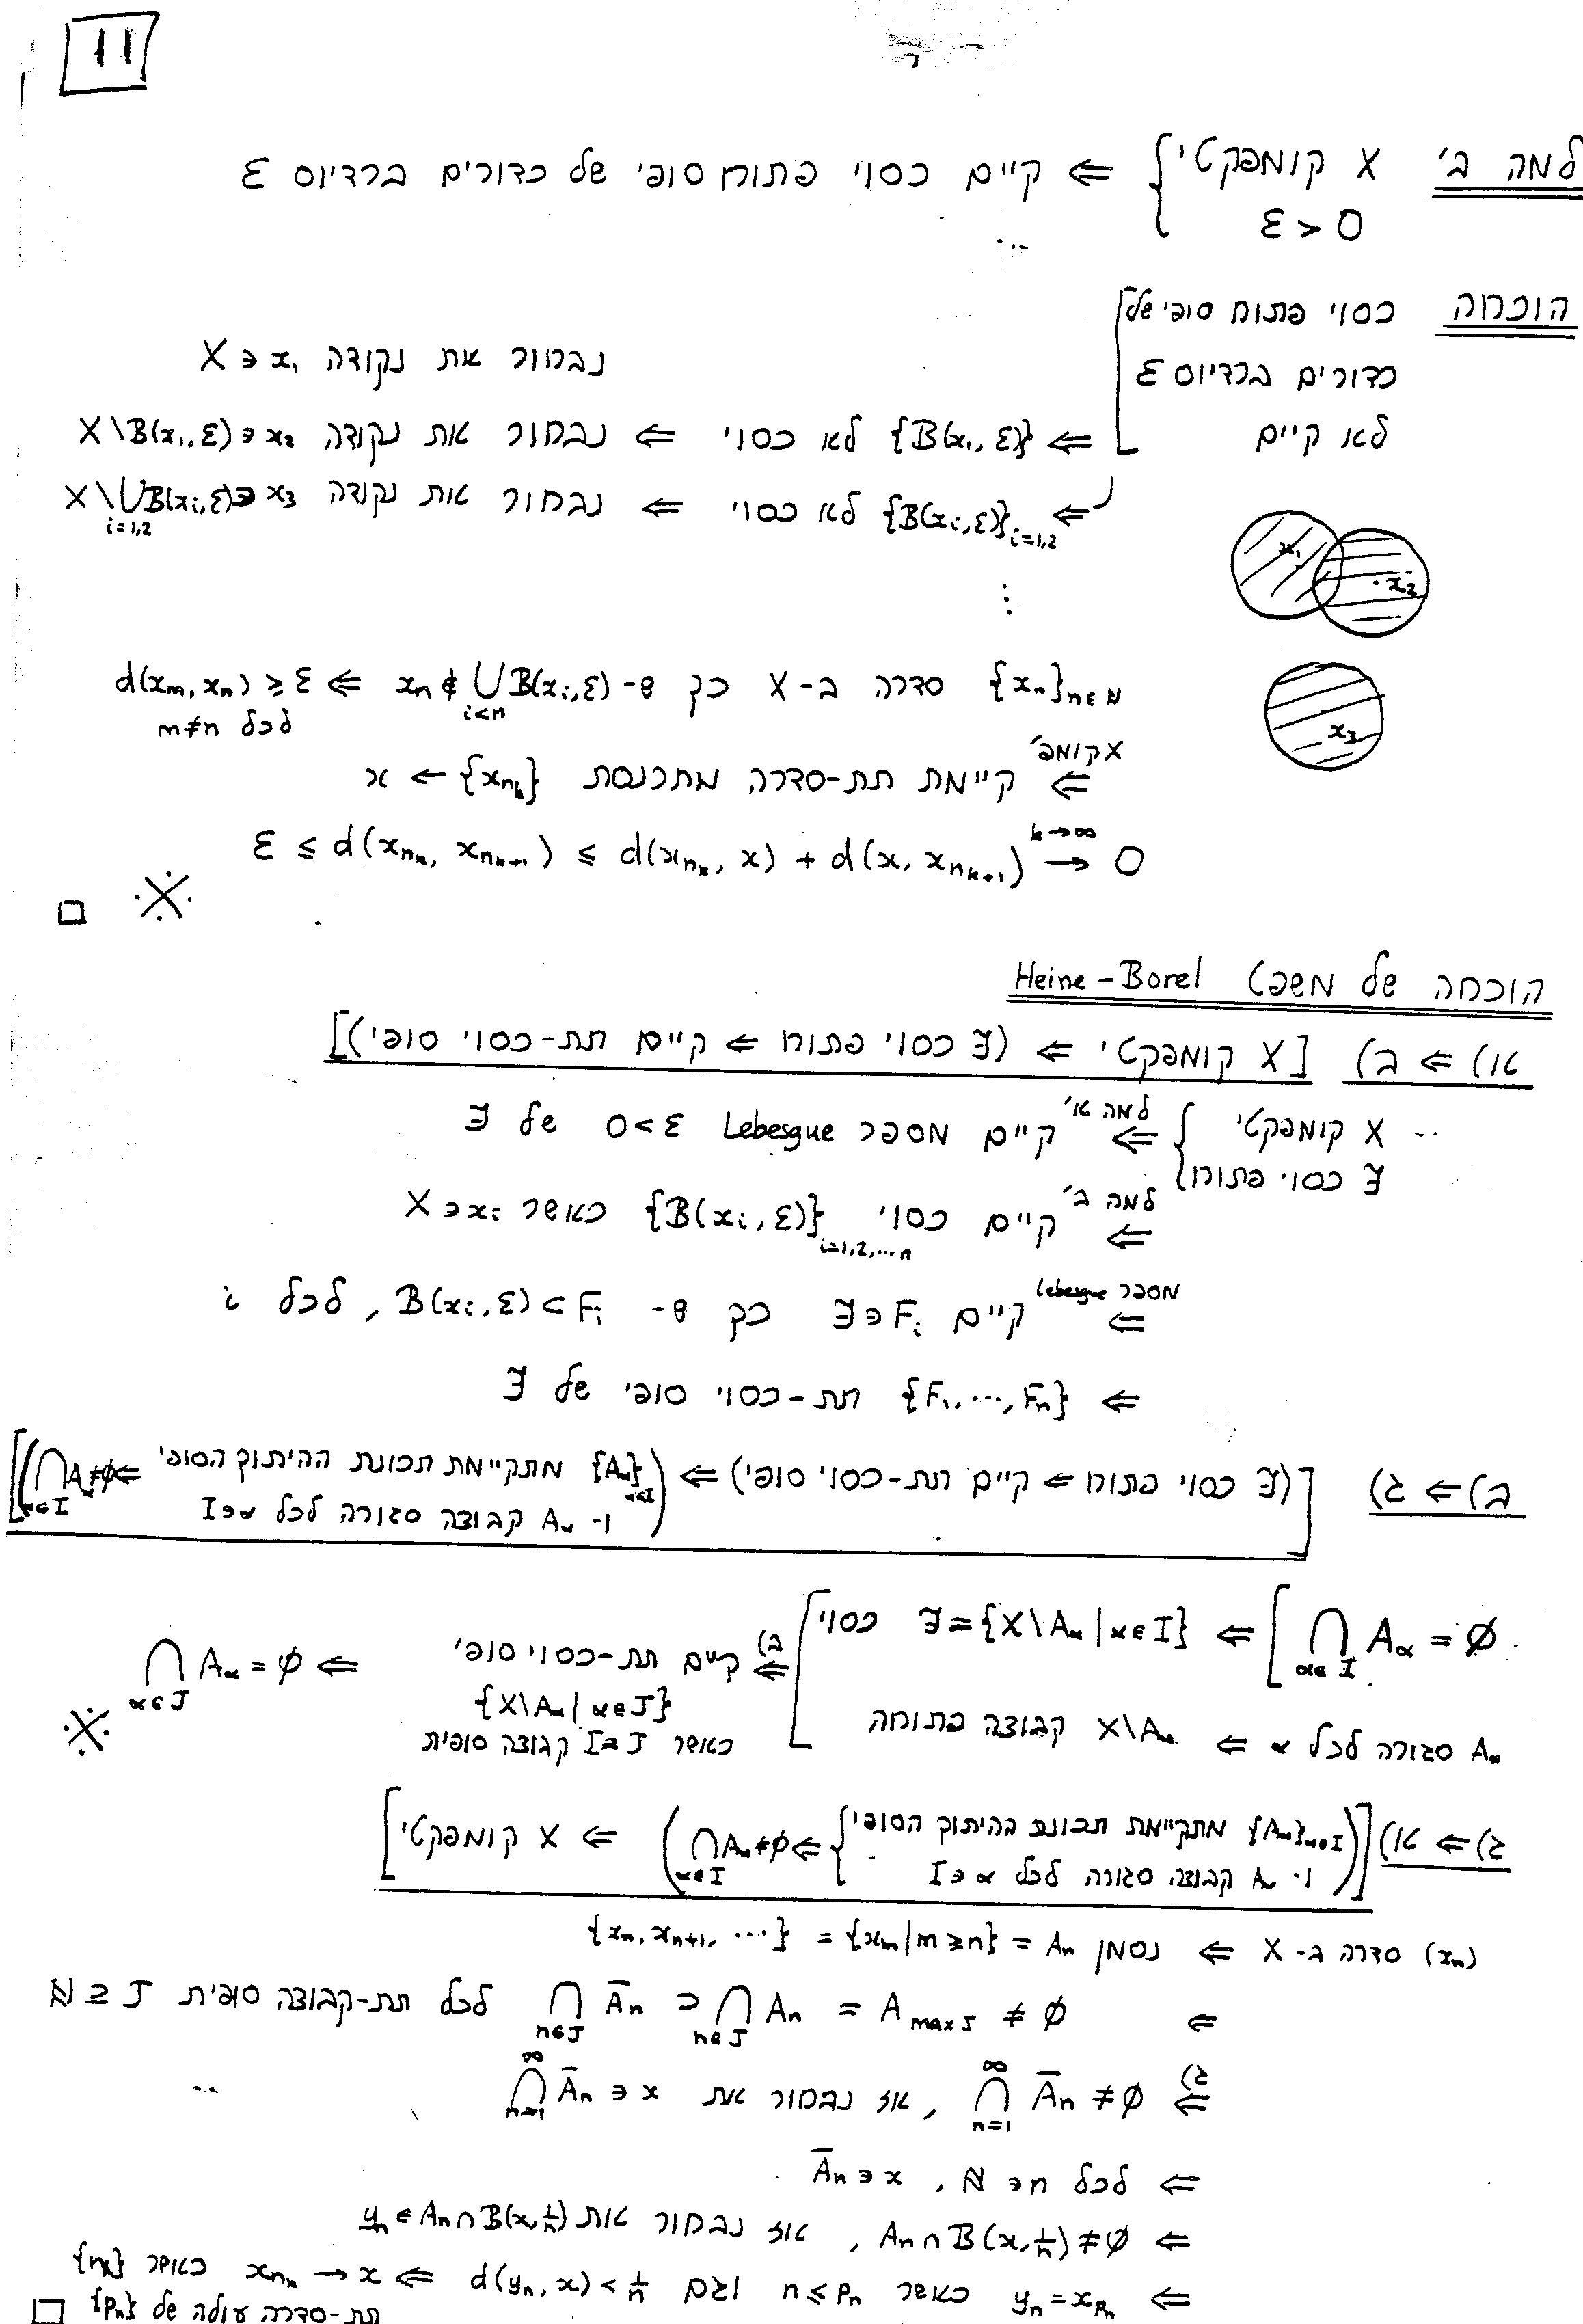 11
למה ב' X קומפקטי } ⇐ קיים כסוי פתוח סופי של כדורים ברדיוס ε
ε > 0
הוכחה כסוי פתוח סופי של
כדורים ברדיוס ε
לא קיים
נבחור את נקודה X ∋ x₁
⇐ {B(x₁, ε)} לא כסוי ⇐ נבחור את נקודה X\B(x₁, ε) ∋ x₂
⇐ {B(xᵢ, ε)}ᵢ₌₁,₂ לא כסוי ⇐ נבחור את נקודה X\⋃B(xᵢ, ε) ∋ x₃
i=1,2
⋮
x₁
x₂
x₃
{xₙ}n∈ℕ סדרה ב-X כך ש- xₙ ∉ ⋃B(xᵢ, ε) ⇐ d(xₘ, xₙ) ≥ ε
i<n
לכל m≠n
X קומפ'
⇐ קיימת תת-סדרה מתכנסת {xₙₖ} → x
ε ≤ d(xₙₖ, xₙₖ₊₁) ≤ d(xₙₖ, x) + d(x, xₙₖ₊₁) → 0
k→∞
※ □
הוכחה של משפט Heine-Borel
א) ⇐ ב) [X קומפקטי ⇐ (ℱ כסוי פתוח ⇐ קיים תת-כסוי סופי)]
X קומפקטי } ⇐ למה א' קיים מספר Lebesgue 0<ε של ℱ
ℱ כסוי פתוח
⇐ למה ב' קיים כסוי {B(xᵢ, ε)}ᵢ₌₁,₂,...ₙ כאשר X ∋ xᵢ
⇐ מספר Lebesgue קיים ℱ ∋ Fᵢ כך ש- B(xᵢ, ε) ⊂ Fᵢ, לכל i
⇐ {F₁, ..., Fₙ} תת-כסוי סופי של ℱ
ב) ⇐ ג) [(ℱ כסוי פתוח ⇐ קיים תת-כסוי סופי) ⇐ ({Aα}α∈I מתקיימת תכונת החיתוך הסופי ⇐ ⋂Aα≠∅)]
ו- Aα קבוצה סגורה לכל I∋α
α∈I
⋂ Aα = ∅ ⇐ ℱ = {X\Aα | α∈I} כסוי
α∈I
Aα סגורה לכל α ⇐ X\Aα קבוצה פתוחה
⇐ ב) קיים תת-כסוי סופי ⇐ ⋂ Aα = ∅
α∈J
{X\Aα | α∈J}
כאשר I⊇J קבוצה סופית
※
ג) ⇐ א) [({Aα}α∈I מתקיימת תכונת החיתוך הסופי } ⇐ ⋂Aα≠∅) ⇐ X קומפקטי]
ו- Aα קבוצה סגורה לכל I∋α
α∈I
(xₙ) סדרה ב-X ⇐ נסמן {xₙ, xₙ₊₁, ...} = {xₘ | m≥n} = Aₙ
⇐ ⋂ Āₙ ⊃ ⋂ Aₙ = A max J ≠ ∅ לכל תת-קבוצה סופית ℕ⊇J
n∈J n∈J
⇐ ג) ⋂ₙ₌₁^∞ Āₙ ≠ ∅, אז נבחור את ⋂ₙ₌₁^∞ Āₙ ∋ x
⇐ לכל ℕ∋n, Āₙ∋x
⇐ Aₙ∩B(x, 1/n) ≠ ∅, אז נבחור את yₙ ∈ Aₙ∩B(x, 1/n)
⇐ yₙ = x_pₙ כאשר n≤pₙ וגם d(yₙ, x) < 1/n ⇐ xₙₖ → x כאשר {nₖ}
תת-סדרה עולה של {pₙ} □